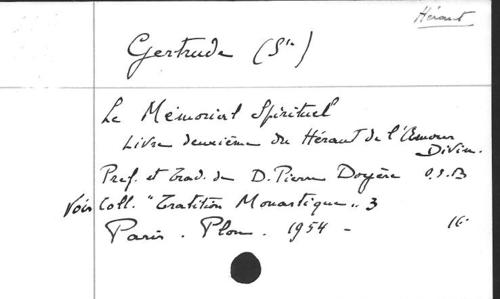 Héraut
Gertrude (Ste)
Le Mémorial Spirituel
Livre deuxième du Héraut de l'Amour
Divin.
Pref. et trad. de D. Pierre Doyère O.S.B
Voir Coll. "Tratition Monastique" 3
Paris. Plon. 1954 - 16